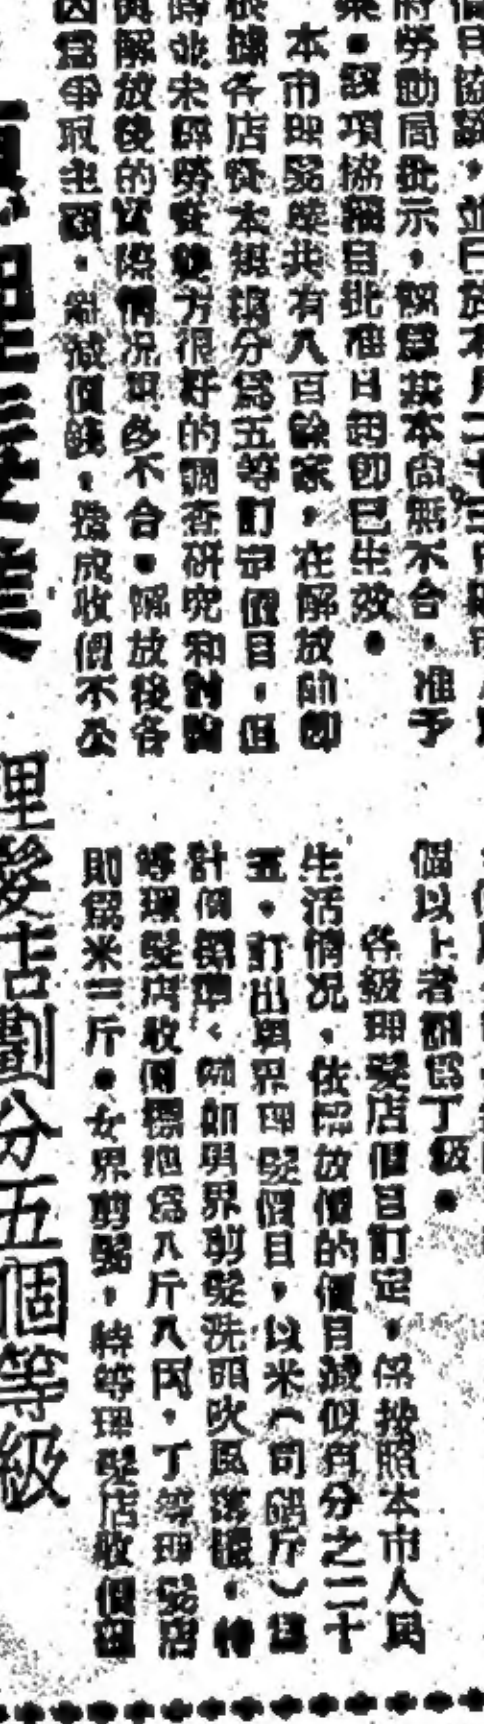 價目協議，並已於本月二十三日
府勞動局批示，認為基本尚無不合，准予
案。該項協議自批准日起即已生效。
本市理髮業共有八百餘家，在解放前即
根據各店資本規模分為五等訂定價目，但
時並未經勞資雙方很好的調查研究和討論
與解放後的實際情況頗多不合。解放後各
因爲爭取主顧，削減價錢，造成收價不公
個以上者劃為丁級。
各級理髮店價目訂定，係按照本市人民
生活情況，依照放假的價目減低百分之二十
五，訂出男界理髮價目，以米（司碼斤）為
計價標準、例如男界剪髮洗頭吹風落蠟，特
等理髮店收價標準為八斤八両，丁等理髮店
則為米三斤。女界剪髮，特等理髮店收價
理髮業
理髮店劃分五個等級